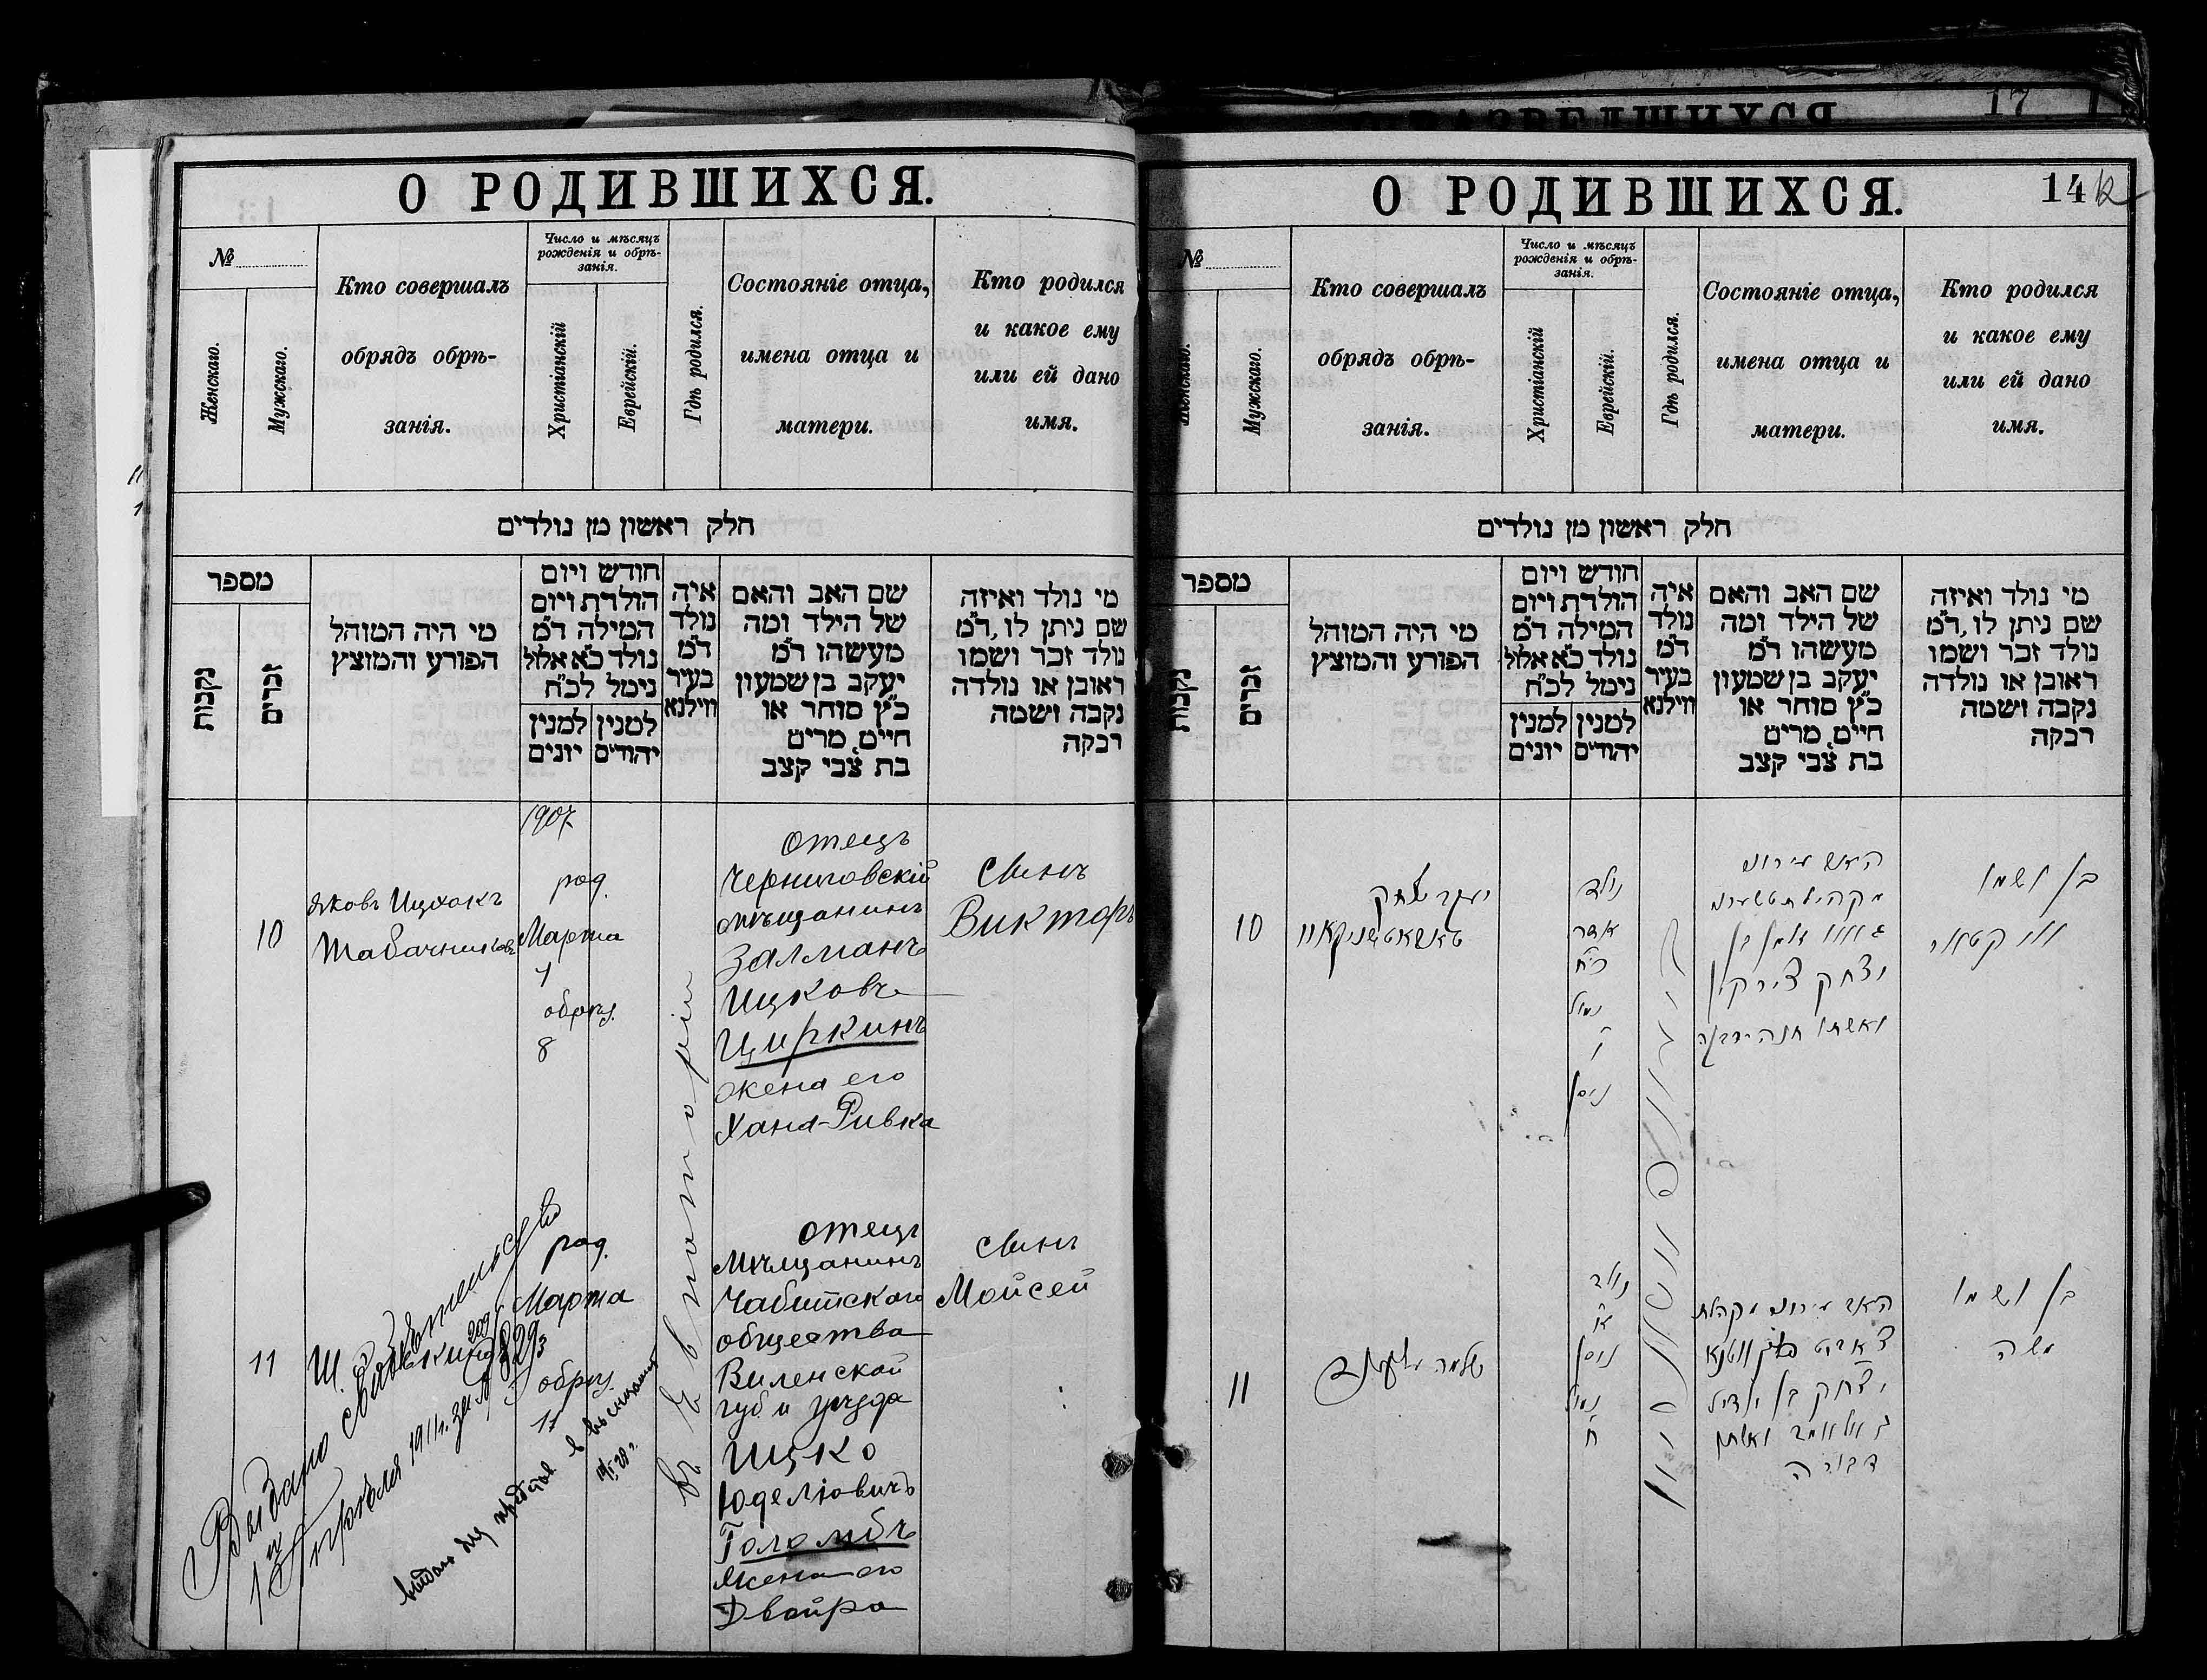 О РОДИВШИХСЯ.
№
Женскаго.
Мужскаго.
Кто совершалъ
обрядъ обрѣ-
занія.
Число и мѣсяцъ
рожденія и обрѣ-
занія.
Христіанскій
Еврейскій.
Гдѣ родился.
Состояніе отца,
имена отца и
матери.
Кто родился
и какое ему
или ей дано
имя.
חלק ראשון מן נולדים
מספר
נקבות
זכרים
מי היה המוהל
הפורע והמוצץ
חודש ויום
הולדת ויום
המילה ד״מ
נולד כ״א אלול
נימל לכ״ח
למנין
יהודים
למנין
יונים
איה
נולד
ד״מ
בעיר
ווילנא
שם האב והאם
של הילד ומה
מעשהו ד״מ
יעקב בן שמעון
כ״ץ סוחר או
חייט, מרים
בת צבי קצב
מי נולד ואיזה
שם ניתן לו, ד״מ
נולד זכר ושמו
ראובן או נולדה
נקבה ושמה
רבקה
10
Яковъ Ицхокъ
Табачниковъ
1907
род.
Марта
1
обрѣз.
8
въ Евпаторіи
Отецъ
Черниговскій
мѣщанинъ
Залманъ
Ицковъ
Циркинъ
жена его
Хана-Ривка
Сынъ
Викторъ
11
Ш.
род.
Марта
3
обрѣз.
Отецъ
Мѣщанинъ
общества
Виленской
губ. и уѣзда
Ицко
Юделіовичъ
Голомбъ
жена его
Двойра
Сынъ
Мойсей
Выдано свидѣтельство
Апрѣля 1911 г. за №
17
О РОДИВШИХСЯ.
14
№
Женскаго.
Мужскаго.
Кто совершалъ
обрядъ обрѣ-
занія.
Число и мѣсяцъ
рожденія и обрѣ-
занія.
Христіанскій
Еврейскій.
Гдѣ родился.
Состояніе отца,
имена отца и
матери.
Кто родился
и какое ему
или ей дано
имя.
חלק ראשון מן נולדים
מספר
נקבות
זכרים
מי היה המוהל
הפורע והמוצץ
חודש ויום
הולדת ויום
המילה ד״מ
נולד כ״א אלול
נימל לכ״ח
למנין
יהודים
למנין
יונים
איה
נולד
ד״מ
בעיר
ווילנא
שם האב והאם
של הילד ומה
מעשהו ד״מ
יעקב בן שמעון
כ״ץ סוחר או
חייט, מרים
בת צבי קצב
מי נולד ואיזה
שם ניתן לו, ד״מ
נולד זכר ושמו
ראובן או נולדה
נקבה ושמה
רבקה
10
יעקב יצחק
נולד
אדר
נימול
ניסן
יצחק צירקין
ואשתו חנה רבקה
בן ושמו
וויקטאר
11
שלמה
נולד
ניסן
נימול
יצחק בן יודיל
ואשתו
דבורה
בן ושמו
משה